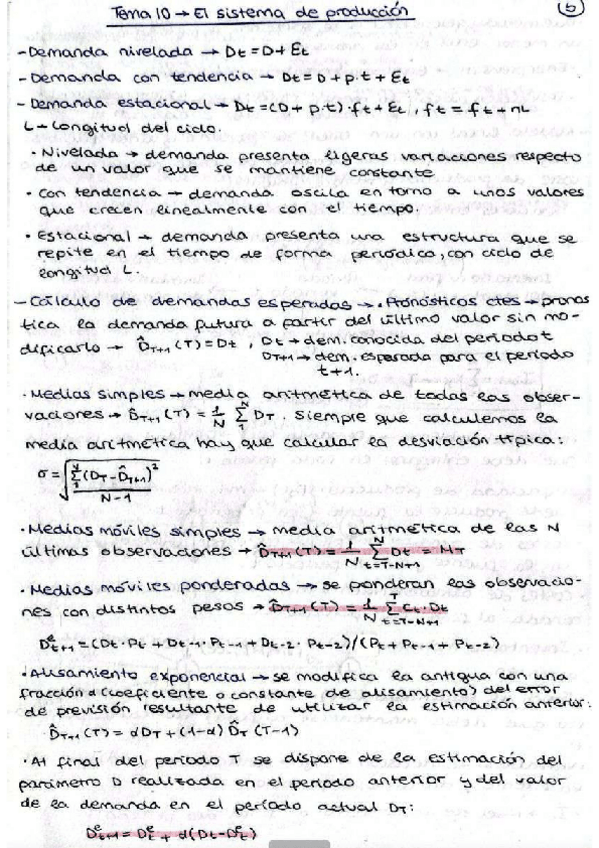 Tema 10 → El sistema de producción
6
- Demanda nivelada → Dt = D + Et
- Demanda con tendencia → Dt = D + p·t + Et
- Demanda estacional → Dt = (D + p·t)·ft + Et, ft = ft + nL
L → Longitud del ciclo.
· Nivelada → demanda presenta ligeras variaciones respecto
de un valor que se mantiene constante
· Con tendencia → demanda oscila en torno a unos valores
que crecen linealmente con el tiempo.
· Estacional → demanda presenta una estructura que se
repite en el tiempo de forma periódica, con ciclo de
longitud L.
- Cálculo de demandas esperadas → · Pronósticos ctes → pronos
tica la demanda futura a partir del último valor sin mo-
dificarlo → D̂T+1 (T) = Dt, Dt → dem. conocida del periodo t
DT+1 → dem. esperada para el periodo
t+1.
· Medias simples → media aritmética de todas las obser-
vaciones → D̂T+1 (T) = 1/N Σ DT. Siempre que calculemos la
media aritmética hay que calcular la desviación típica:
σ = √(Σ(DT - D̂T+1)² / N-1)
· Medias móviles simples → media aritmética de las N
últimas observaciones → D̂T+1 (T) = 1/N Σ t=T-N+1 N Dt = MT
· Medias móviles ponderadas → se ponderan las observacio-
nes con distintos pesos → D̂T+1 (T) = 1/N Σ t=T-N+1 Ct·Dt
Dᵉt+1 = (Dt·Pt + Dt-1·Pt-1 + Dt-2·Pt-2)/(Pt + Pt-1 + Pt-2)
· Alisamiento exponencial → se modifica la antigua con una
fracción α (coeficiente o constante de alisamiento) del error
de previsión resultante de utilizar la estimación anterior:
· D̂T+1 (T) = αDT + (1-α) D̂T (T-1)
· Al final del periodo T se dispone de la estimación del
parámetro D realizada en el periodo anterior y del valor
de la demanda en el período actual DT:
Dᵉt+1 = Dᵉt + α(Dt - Dᵉt)